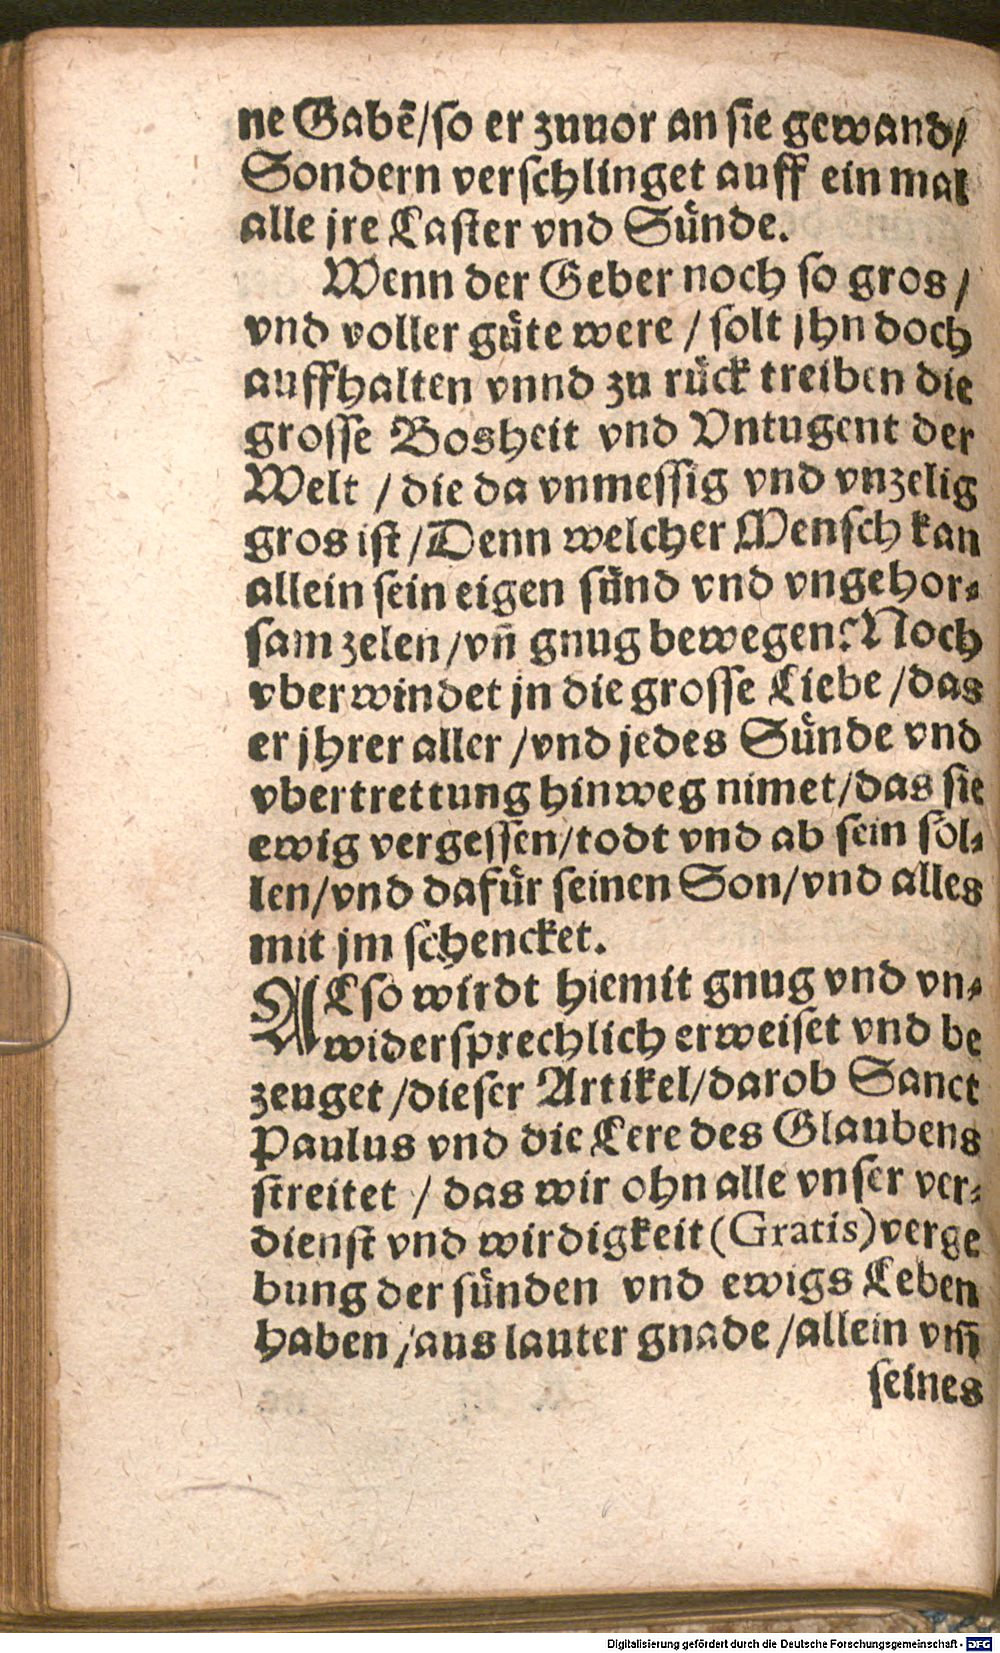 ne Gabē/so er zuuor an sie gewand/
Sondern verschlinget auff ein mal
alle jre Laster vnd Sünde.
Wenn der Geber noch so gros /
vnd voller güte were / solt jhn doch
auffhalten vnnd zu rück treiben die
grosse Bosheit vnd Vntugent der
Welt / die da vnmessig vnd vnzelig
gros ist / Denn welcher Mensch kan
allein sein eigen sünd vnd vngehor⸗
sam zelen /vn̄ gnug bewegen? Noch
vberwindet jn die grosse Liebe /das
er jhrer aller /vnd jedes Sünde vnd
vbertrettung hinweg nimet/das sie
ewig vergessen/todt vnd ab sein sol⸗
len/vnd dafür seinen Son/vnd alles
mit jm schencket.
ALso wirdt hiemit gnug vnd vn⸗
widersprechlich erweiset vnd be
zeuget /dieser Artikel/darob Sanct
Paulus vnd die Lere des Glaubens
streitet / das wir ohn alle vnser ver⸗
dienst vnd wirdigkeit (Gratis) verge
bung der sünden vnd ewigs Leben
haben /aus lauter gnade /allein vm̄
seines
Digitalisierung gefördert durch die Deutsche Forschungsgemeinschaft - DFG